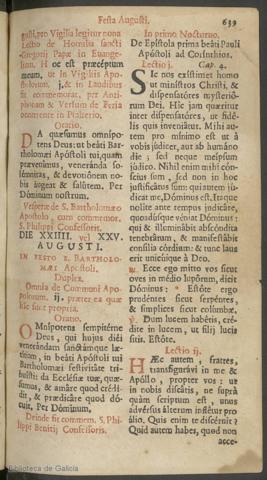 Festa Augusti. 639
gusti, pro Vigilia legitur nona
Lectio de Homilia sancti
Gregorij Papæ in Evange-
lium, Hoc est præceptum
meum, ut in Vigiliis Apo-
stolorum, & in Laudibus
fit commemorat. per Anti-
phonam & Versum de Feria
occurrente in Psalterio.
Oratio.
DA quæsumus omnipo-
tens Deus: ut beáti Bar-
tholomǽi Apóstoli tui, quam
prævenímus, veneránda so-
lémnitas, & devotiónem no-
bis áugeat & salútem. Per
Dóminum nostrum.
Vesperæ de S. Bartholomæo
Apostolo, cum commemor.
S. Philippi Confessoris.
DIE XXIIII. vel XXV.
AUGUSTI.
IN FESTO S. BARTHOLO-
MÆI Apostoli.
Duplex.
Omnia de Communi Apo-
stolorum, præter ea quæ
hic sunt propria.
Oratio.
OMnípotens sempitérne
Deus, qui hujus diéi
venerándam sanctámque læ-
titiam, in beáti Apóstoli tui
Bartholomǽi festivitáte tri-
buísti: da Ecclésiæ tuæ, quǽ-
sumus, & amáre quod crédi-
dit, & prædicáre quod dó-
cuit. Per Dóminum.
Deinde fit commem. S. Phi-
lippi Benitij Confessoris.
In primo Nocturno.
De Epístola prima beáti Pauli
Apóstoli ad Corínthios.
Lectio j. Cap. 4.
SIc nos exístimet homo
ut minístros Christi, &
dispensatóres mysterió-
rum Dei. Hic jam quæritur
inter dispensatóres, ut fidé-
lis quis inveniátur. Mihi au-
tem pro mínimo est ut à
vobis júdicer, aut ab humáno
die; sed neque meípsum
júdico. Nihil enim mihi cón-
scius sum, sed non in hoc
justificátus sum: qui autem jú-
dicat me, Dóminus est. Itaque
nolíte ante tempus judicáre,
quoadúsque véniat Dóminus:
qui & illuminábit abscóndita
tenebrárum, & manifestábit
consília córdium: & tunc laus
erit unicuíque à Deo.
℟. Ecce ego mitto vos sicut
oves in médio lupórum, dicit
Dóminus: * Estóte ergo
prudéntes sicut serpéntes,
& símplices sicut colúmbæ.
℣. Dum lucem habétis, cré-
dite in lucem, ut fílij lucis
sitis. Estóte.
Lectio ij.
HÆc autem, fratres,
transfigurávi in me &
Apóllo, propter vos: ut
in nobis discátis, ne supra
quàm scriptum est, unus
advérsus álterum inflétur pro
álio. Quis enim te discérnit?
Quid autem habes, quod non
acce-
Biblioteca de Galicia